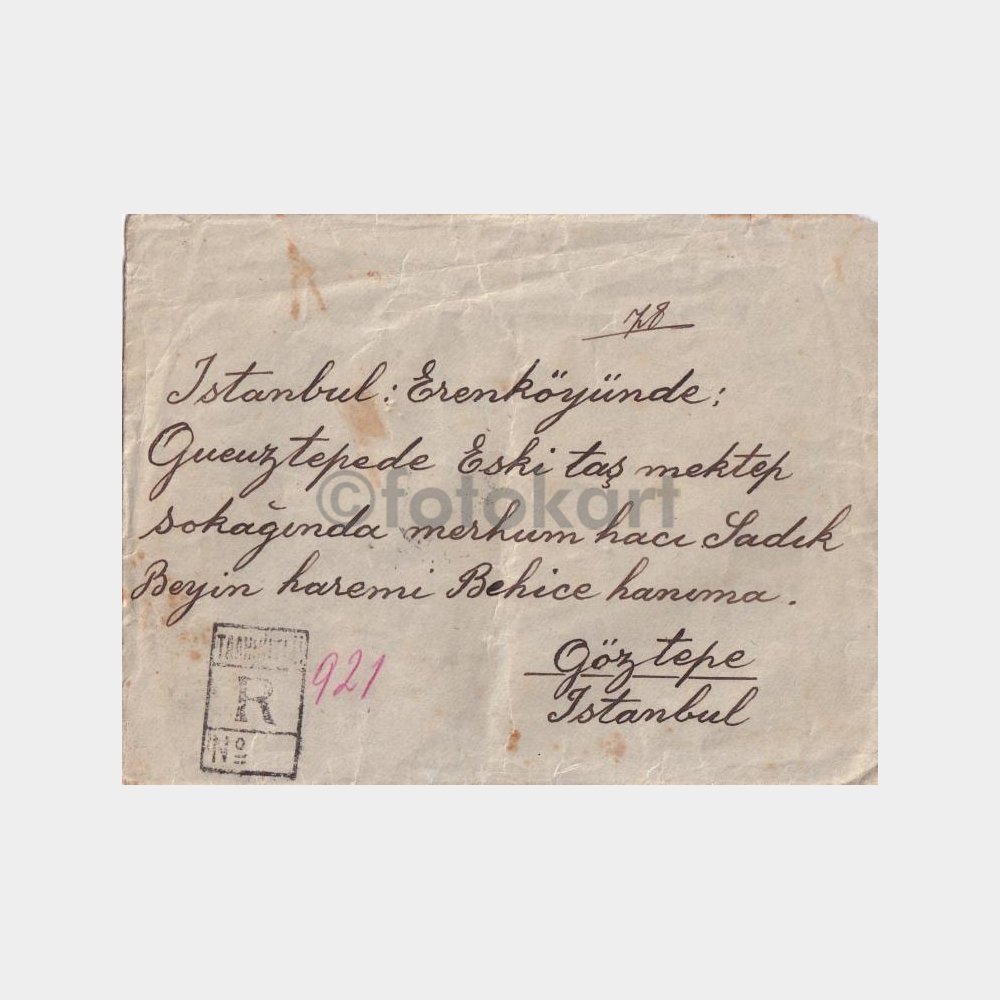 78
Istanbul: Erenköyünde:
Gueuztepede Eski taş mektep
©fotokart
sokağında merhum hacı Sadık
Beyin haremi Behice hanıma.
Göztepe
Istanbul
TAAHHÜTLÜ
R
Nº
921